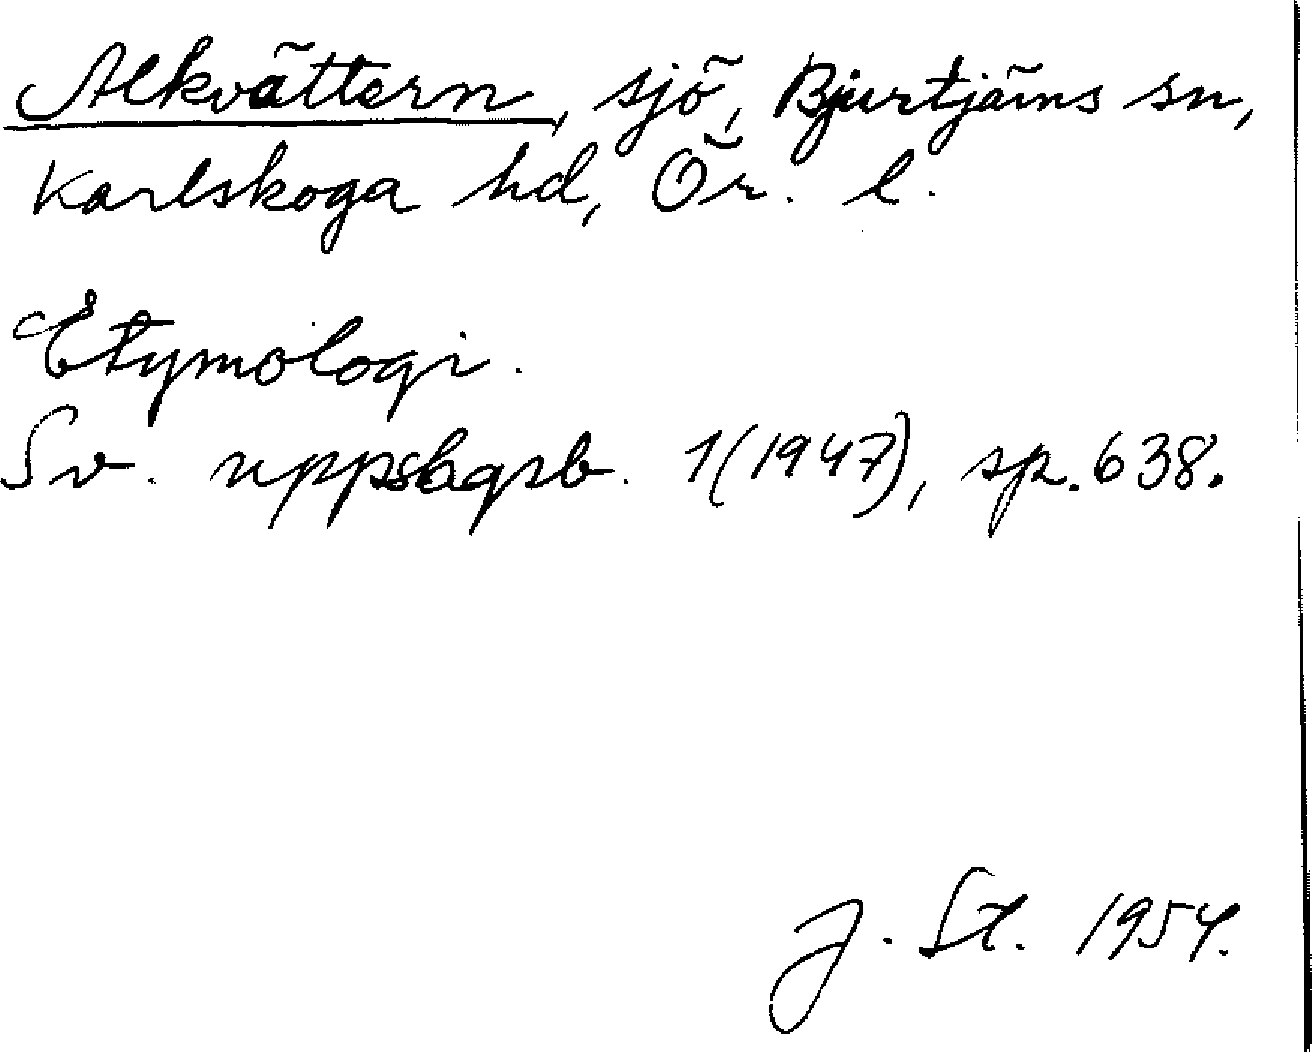 Alkvättern, sjö, Bjurtjärns sn,
Karlskoga hd, Ör. l.
Etymologi.
Sv. uppslagsb. 1(1947), sp. 638.
J. St. 1954.